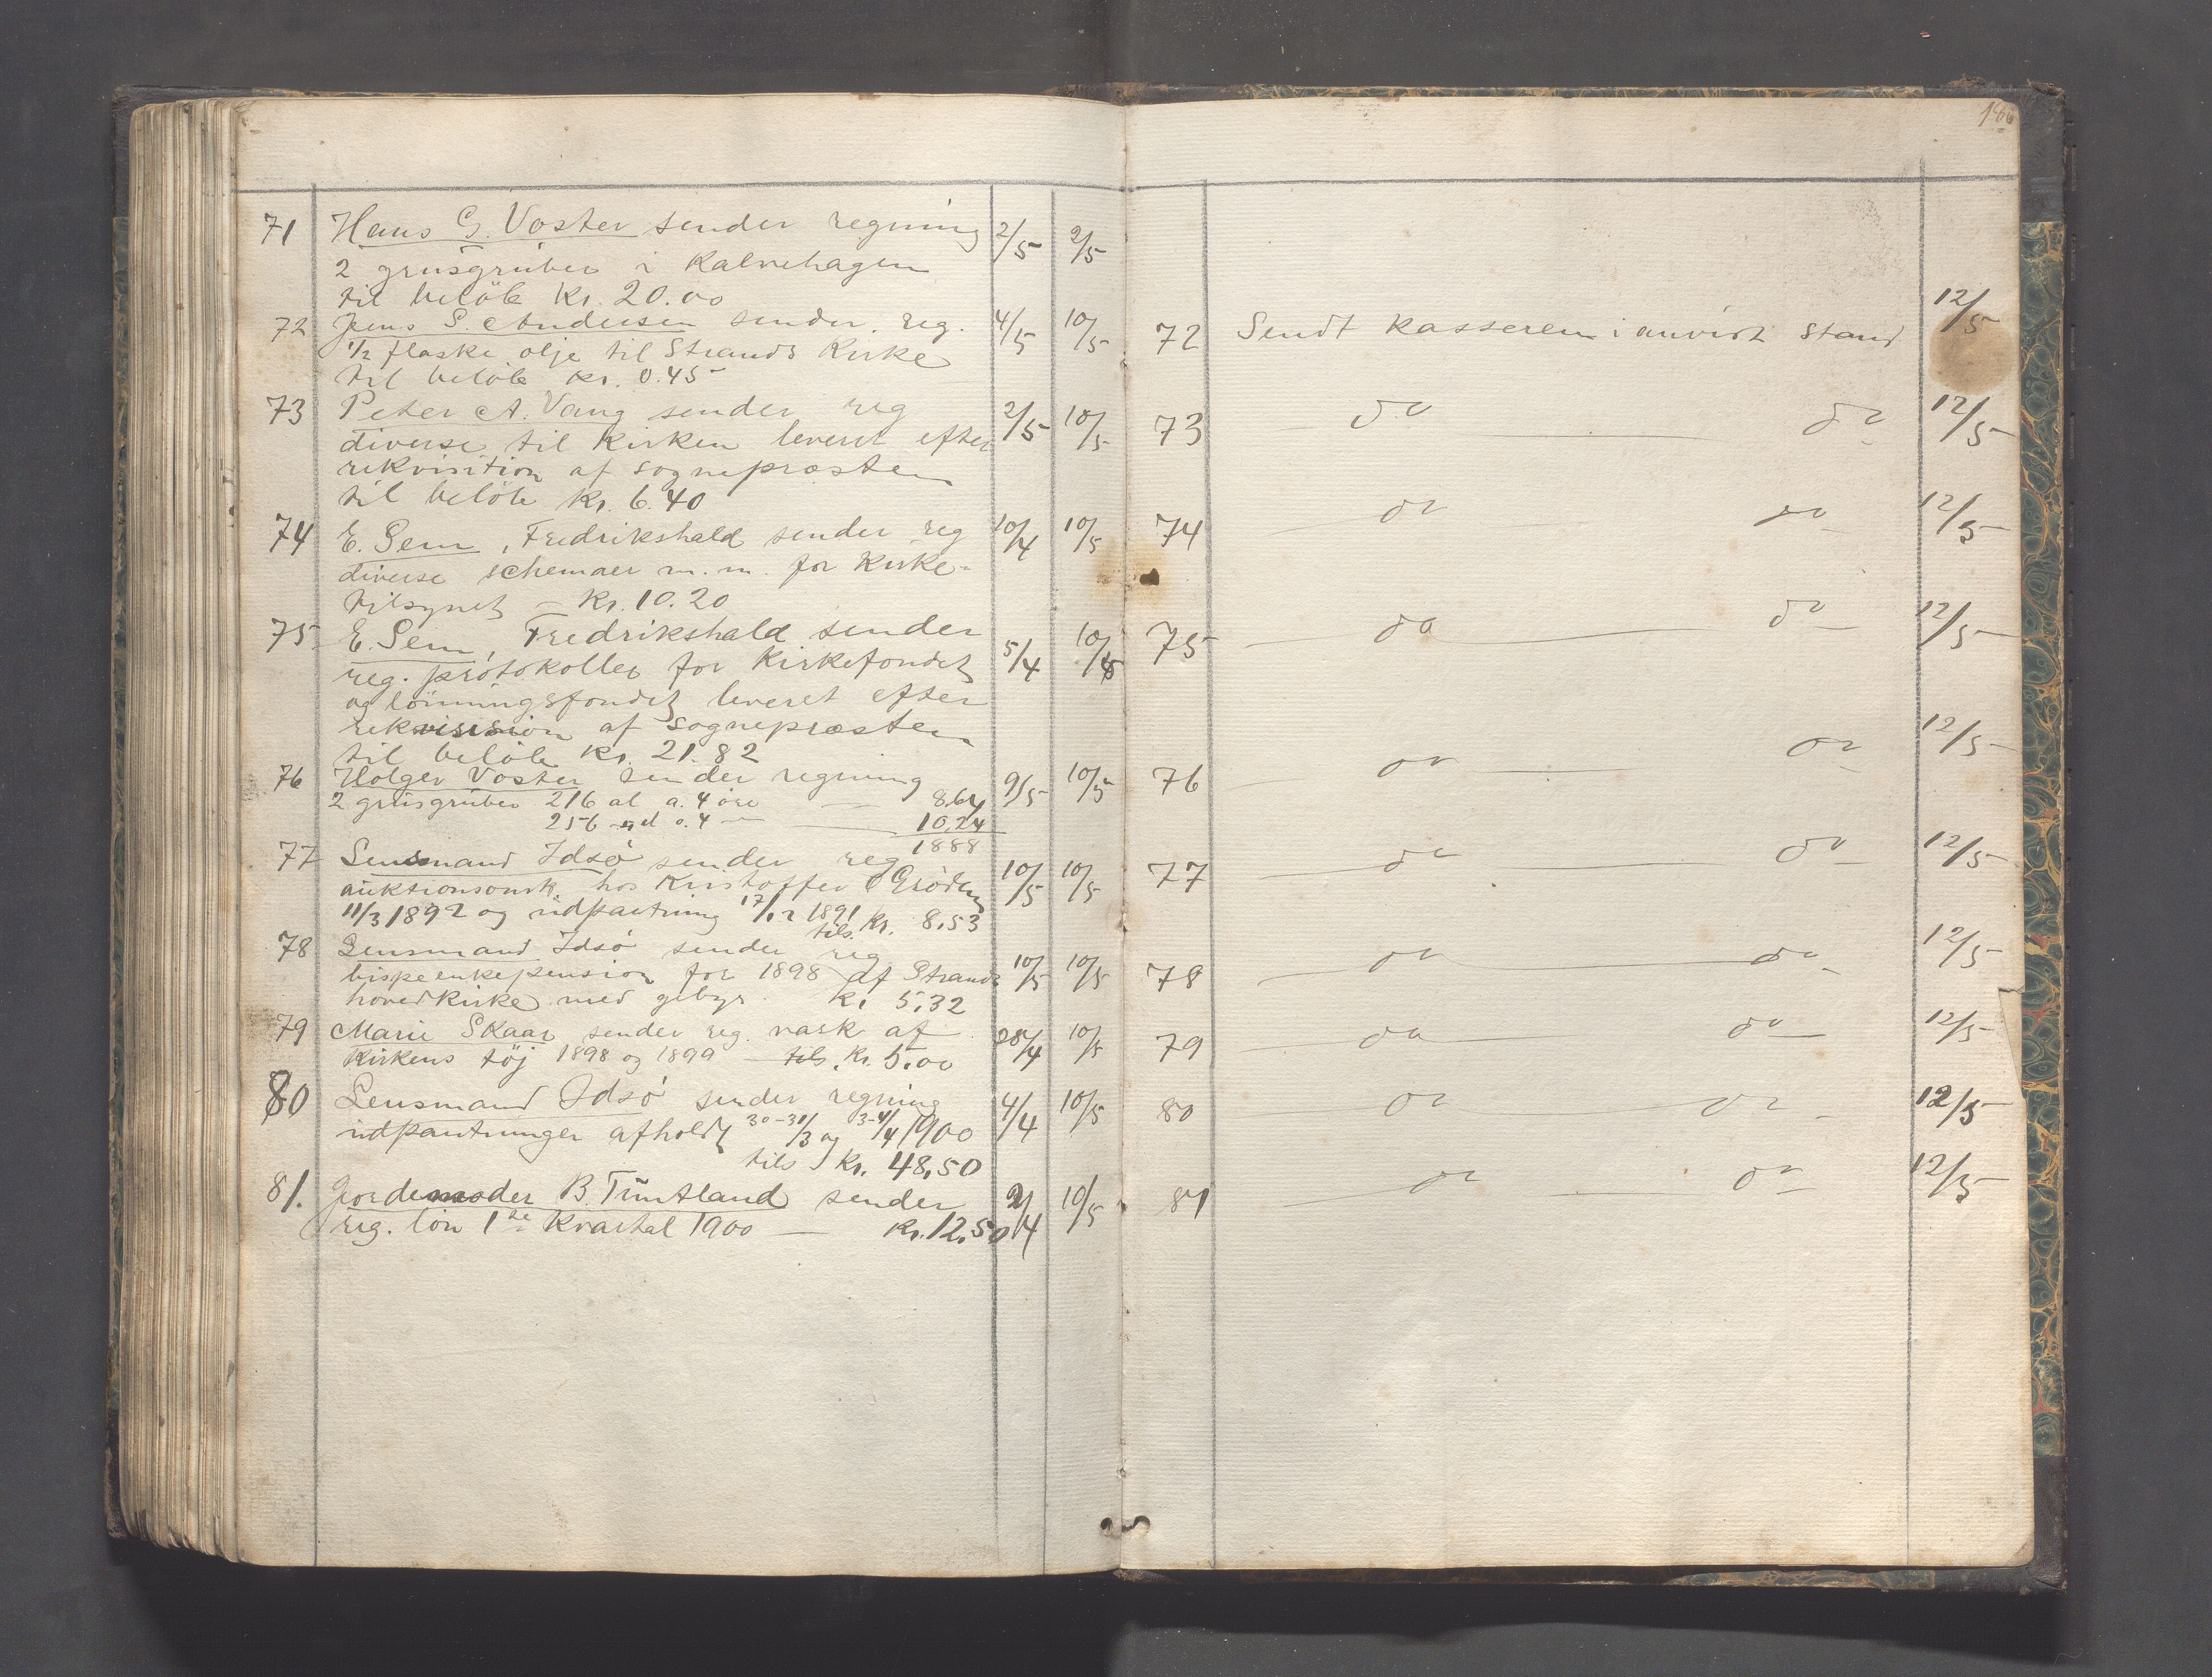 71 Hans G. Voster sender regning 2/5 2/5
2 grusgruber i Kalvehagen
til beløb Kr. 20.00
72 Jens S. Andersen sender. reg. 4/5 10/5
1/2 flaske olje til Strands Kirke
til beløb Kr. 0.45
73 Peter A. Vang sender reg 2/5 10/5
diverse til Kirken leveret efter
rekvisition af sognepræsten
til beløb Kr. 6.40
74 E. Sem, Fredrikshald sender reg 10/4 10/5
diverse schemaer m.m. for Kirke-
tilsynet – Kr. 10.20
75 E. Sem, Fredrikshald sender
reg. protokoller for Kirkefondet 5/4 10/5
og lønningsfondet leveret efter
rekvision af sognepræsten
til beløb Kr. 21.82
76 Holger Voster sender regning 9/5 10/5
2 grusgruber 216 al a. 4 øre — 8.64
256 al a. 4 — 10.24
1888
77 Lensmand Idsø sender reg 10/5 10/5
auktionsomk. hos Kristoffer Grøden
11/3 1892 og udpantning 17/12 1891
tils. Kr. 8.53
78 Lensmand Idsø sender reg 10/5 10/5
bispeenkepension for 1898 af Strands
hovedkirke med gebyr. Kr 5,32
79 Marie Skaar sender reg. vask af 28/4 10/5
Kirkens tøj 1898 og 1899 – tils. Kr. 5.00
80 Lensmand Idsø sender regning 4/4 10/5
udpantninger afholdt 30-31/3 og 3-4/4 1900
tils Kr. 48,50
81. Jordemoder B. Tuntland sender 2/4 10/5
reg. løn 1ste Kvartal 1900 — Kr. 12.50
146
72 Sendt Kasseren i anvist stand 12/5
73 — do — do — 12/5
74 — do do — 12/5
75 — do — do — 12/5
76 — do — do — 12/5
77 — do — do — 12/5
78 — do — do — 12/5
79 do — do — 12/5
80 do — do — 12/5
81 — do — do — 12/5